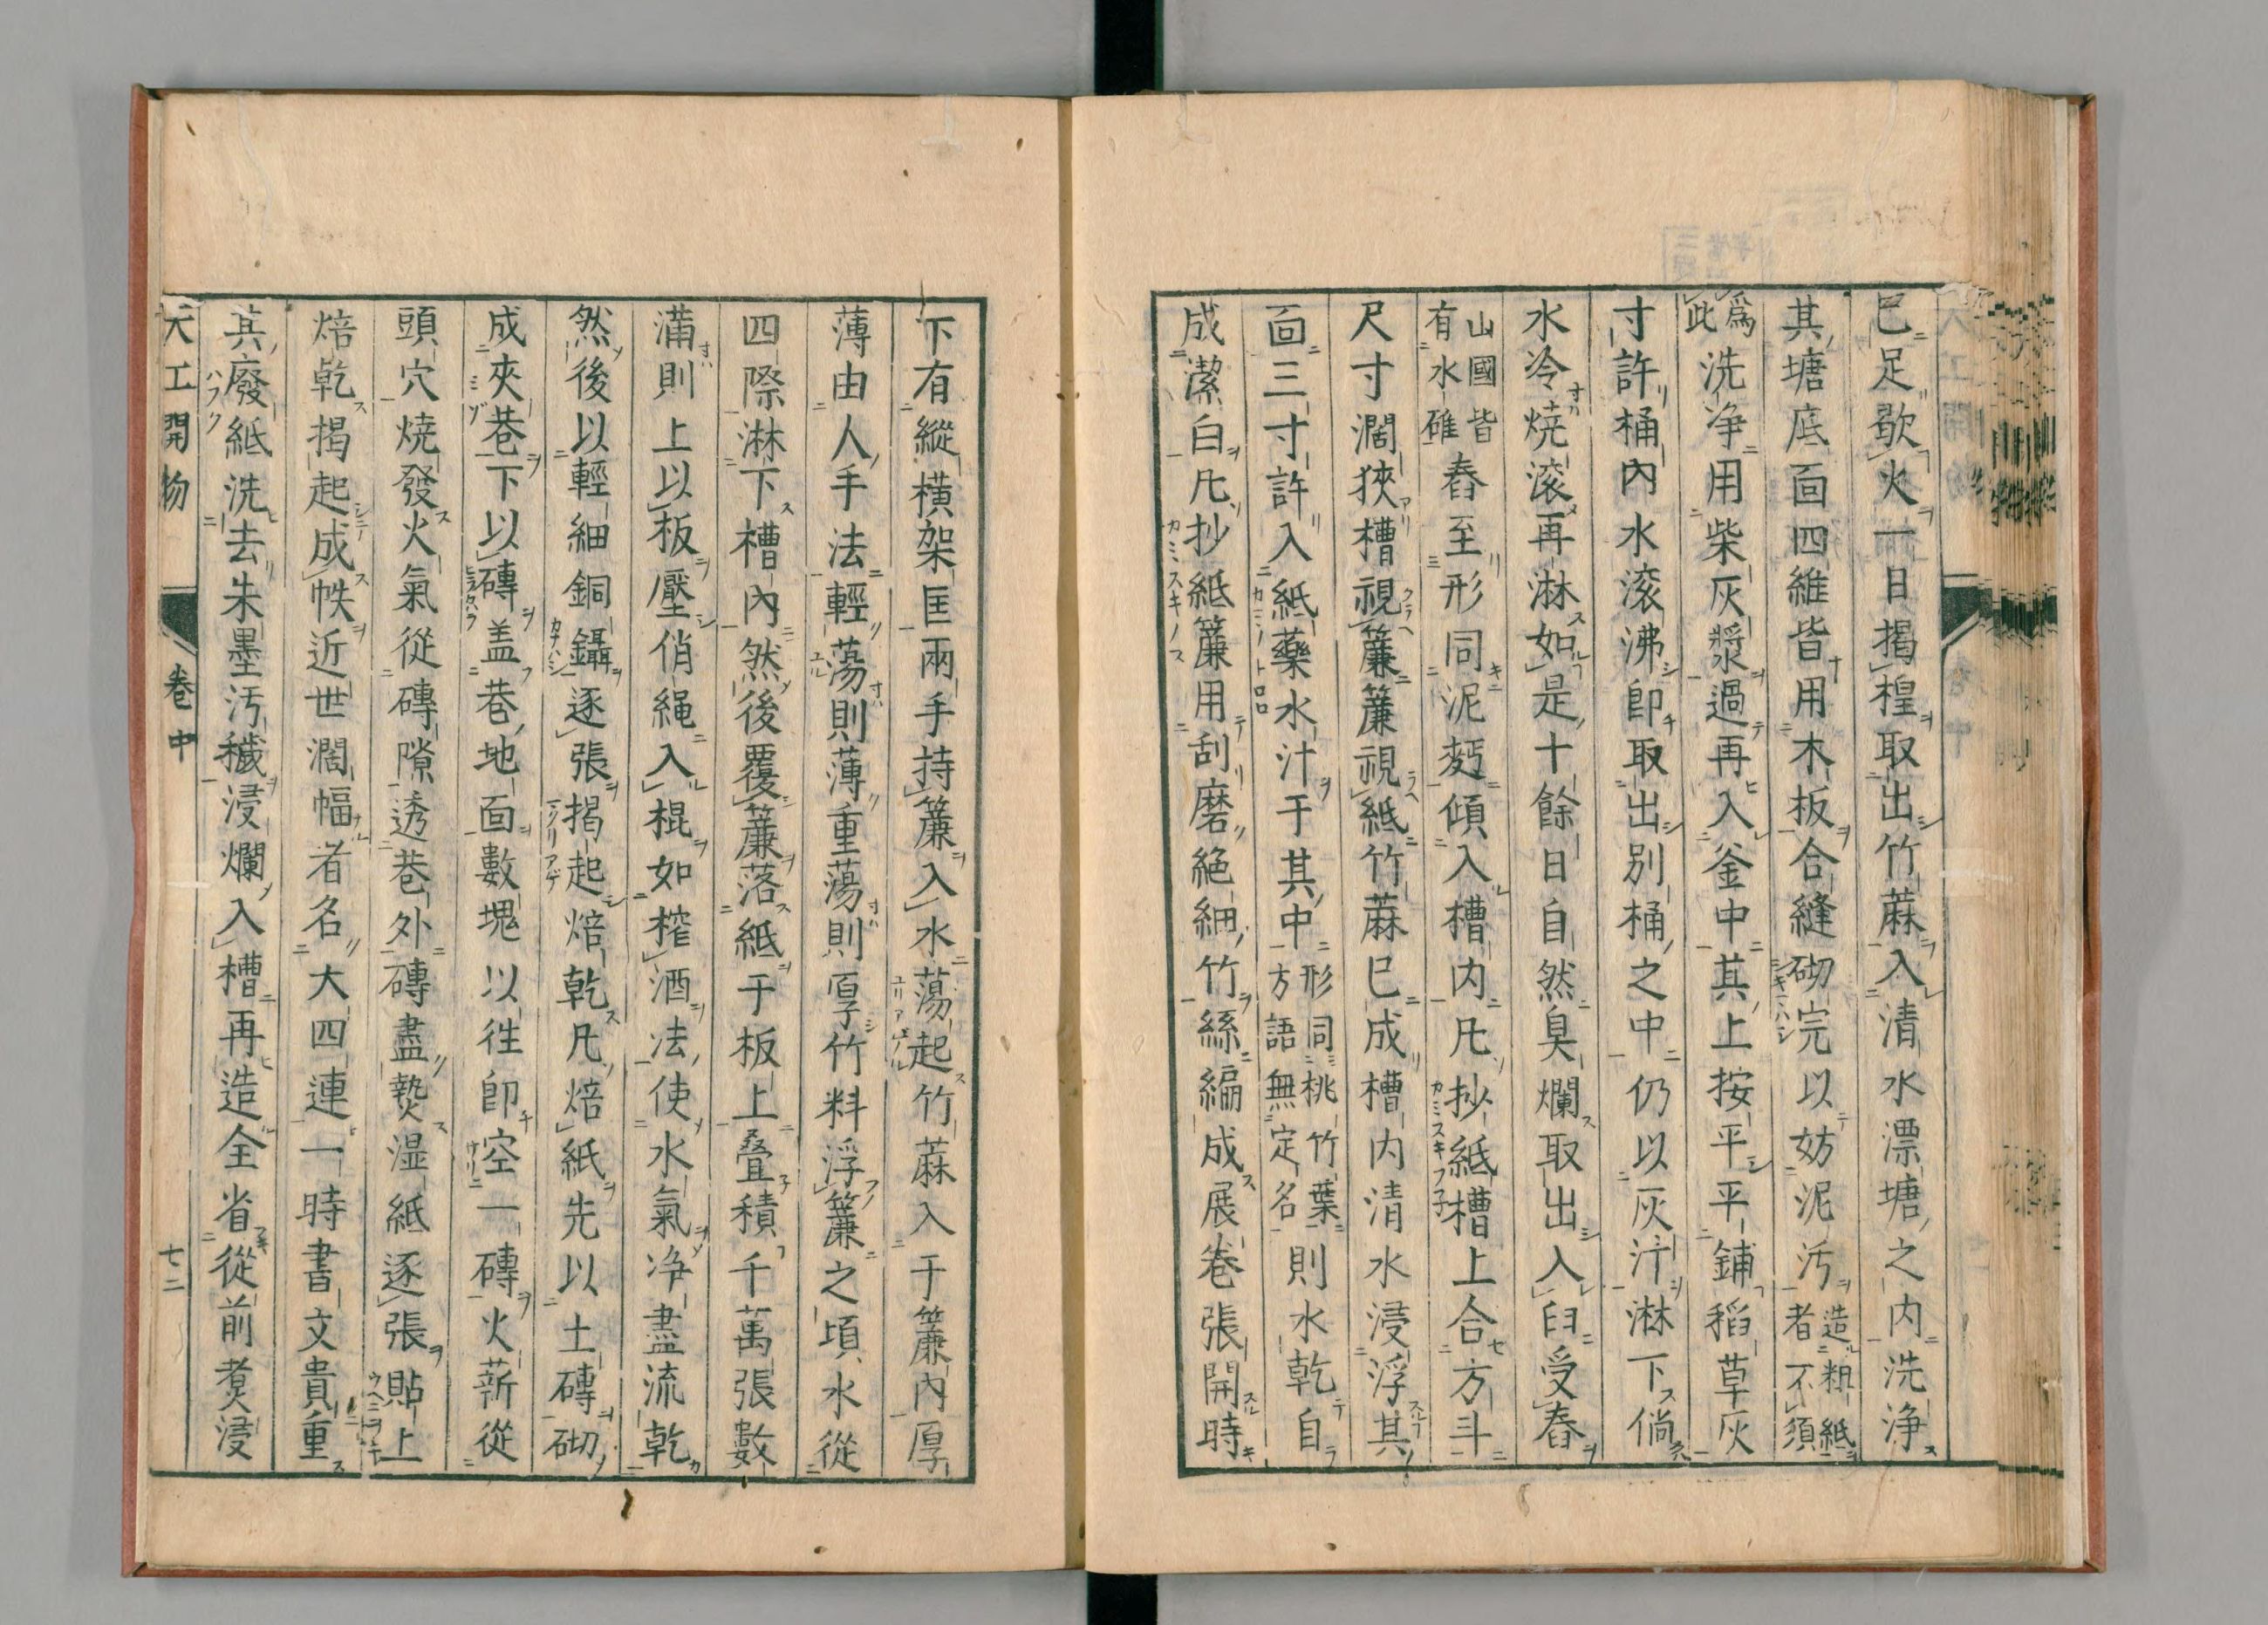 已足歇火一日揭楻取出竹蔴入清水漂塘之内洗浄
其塘底面四維皆用木板合縫砌完以妨泥汚造粗紙者不須
爲此洗浄用柴灰漿過再入釜中其上按平平鋪稻草灰
寸許桶內水滚沸卽取出别桶之中仍以灰汁淋下倘
水冷燒滚再淋如是十餘日自然臭爛取出入臼受舂
山國皆有水碓舂至形同泥麪傾入槽内凡抄紙槽上合方斗
尺寸濶狹槽視簾簾視紙竹蔴已成槽内清水浸浮其
面三寸許入紙藥水汁于其中形同桃竹葉方語無定名則水乾自
成潔白凡抄紙簾用刮磨絶細竹絲編成展巻張開時
下有縱橫架匡兩手持簾入水蕩起竹蔴入于簾内厚
薄由人手法輕蕩則薄重蕩則厚竹料浮簾之頃水從
四際淋下槽內然後覆簾落紙于板上叠積千萬張數
滿則上以板壓俏繩入棍如榨酒法使水氣浄盡流乾
然後以輕細銅鑷逐張揭起焙乾凡焙紙先以土磚砌
成夾巷下以磚盖巷地面數塊以徃卽空一磚火薪從
頭穴燒發火氣從磚隙透巷外磚盡熱湿紙逐張貼上
焙乾揭起成帙近世濶幅者名大四連一時書文貴重
其廢紙洗去朱墨汚穢浸爛入槽再造全省從前煑浸
天工開物　卷中　七二